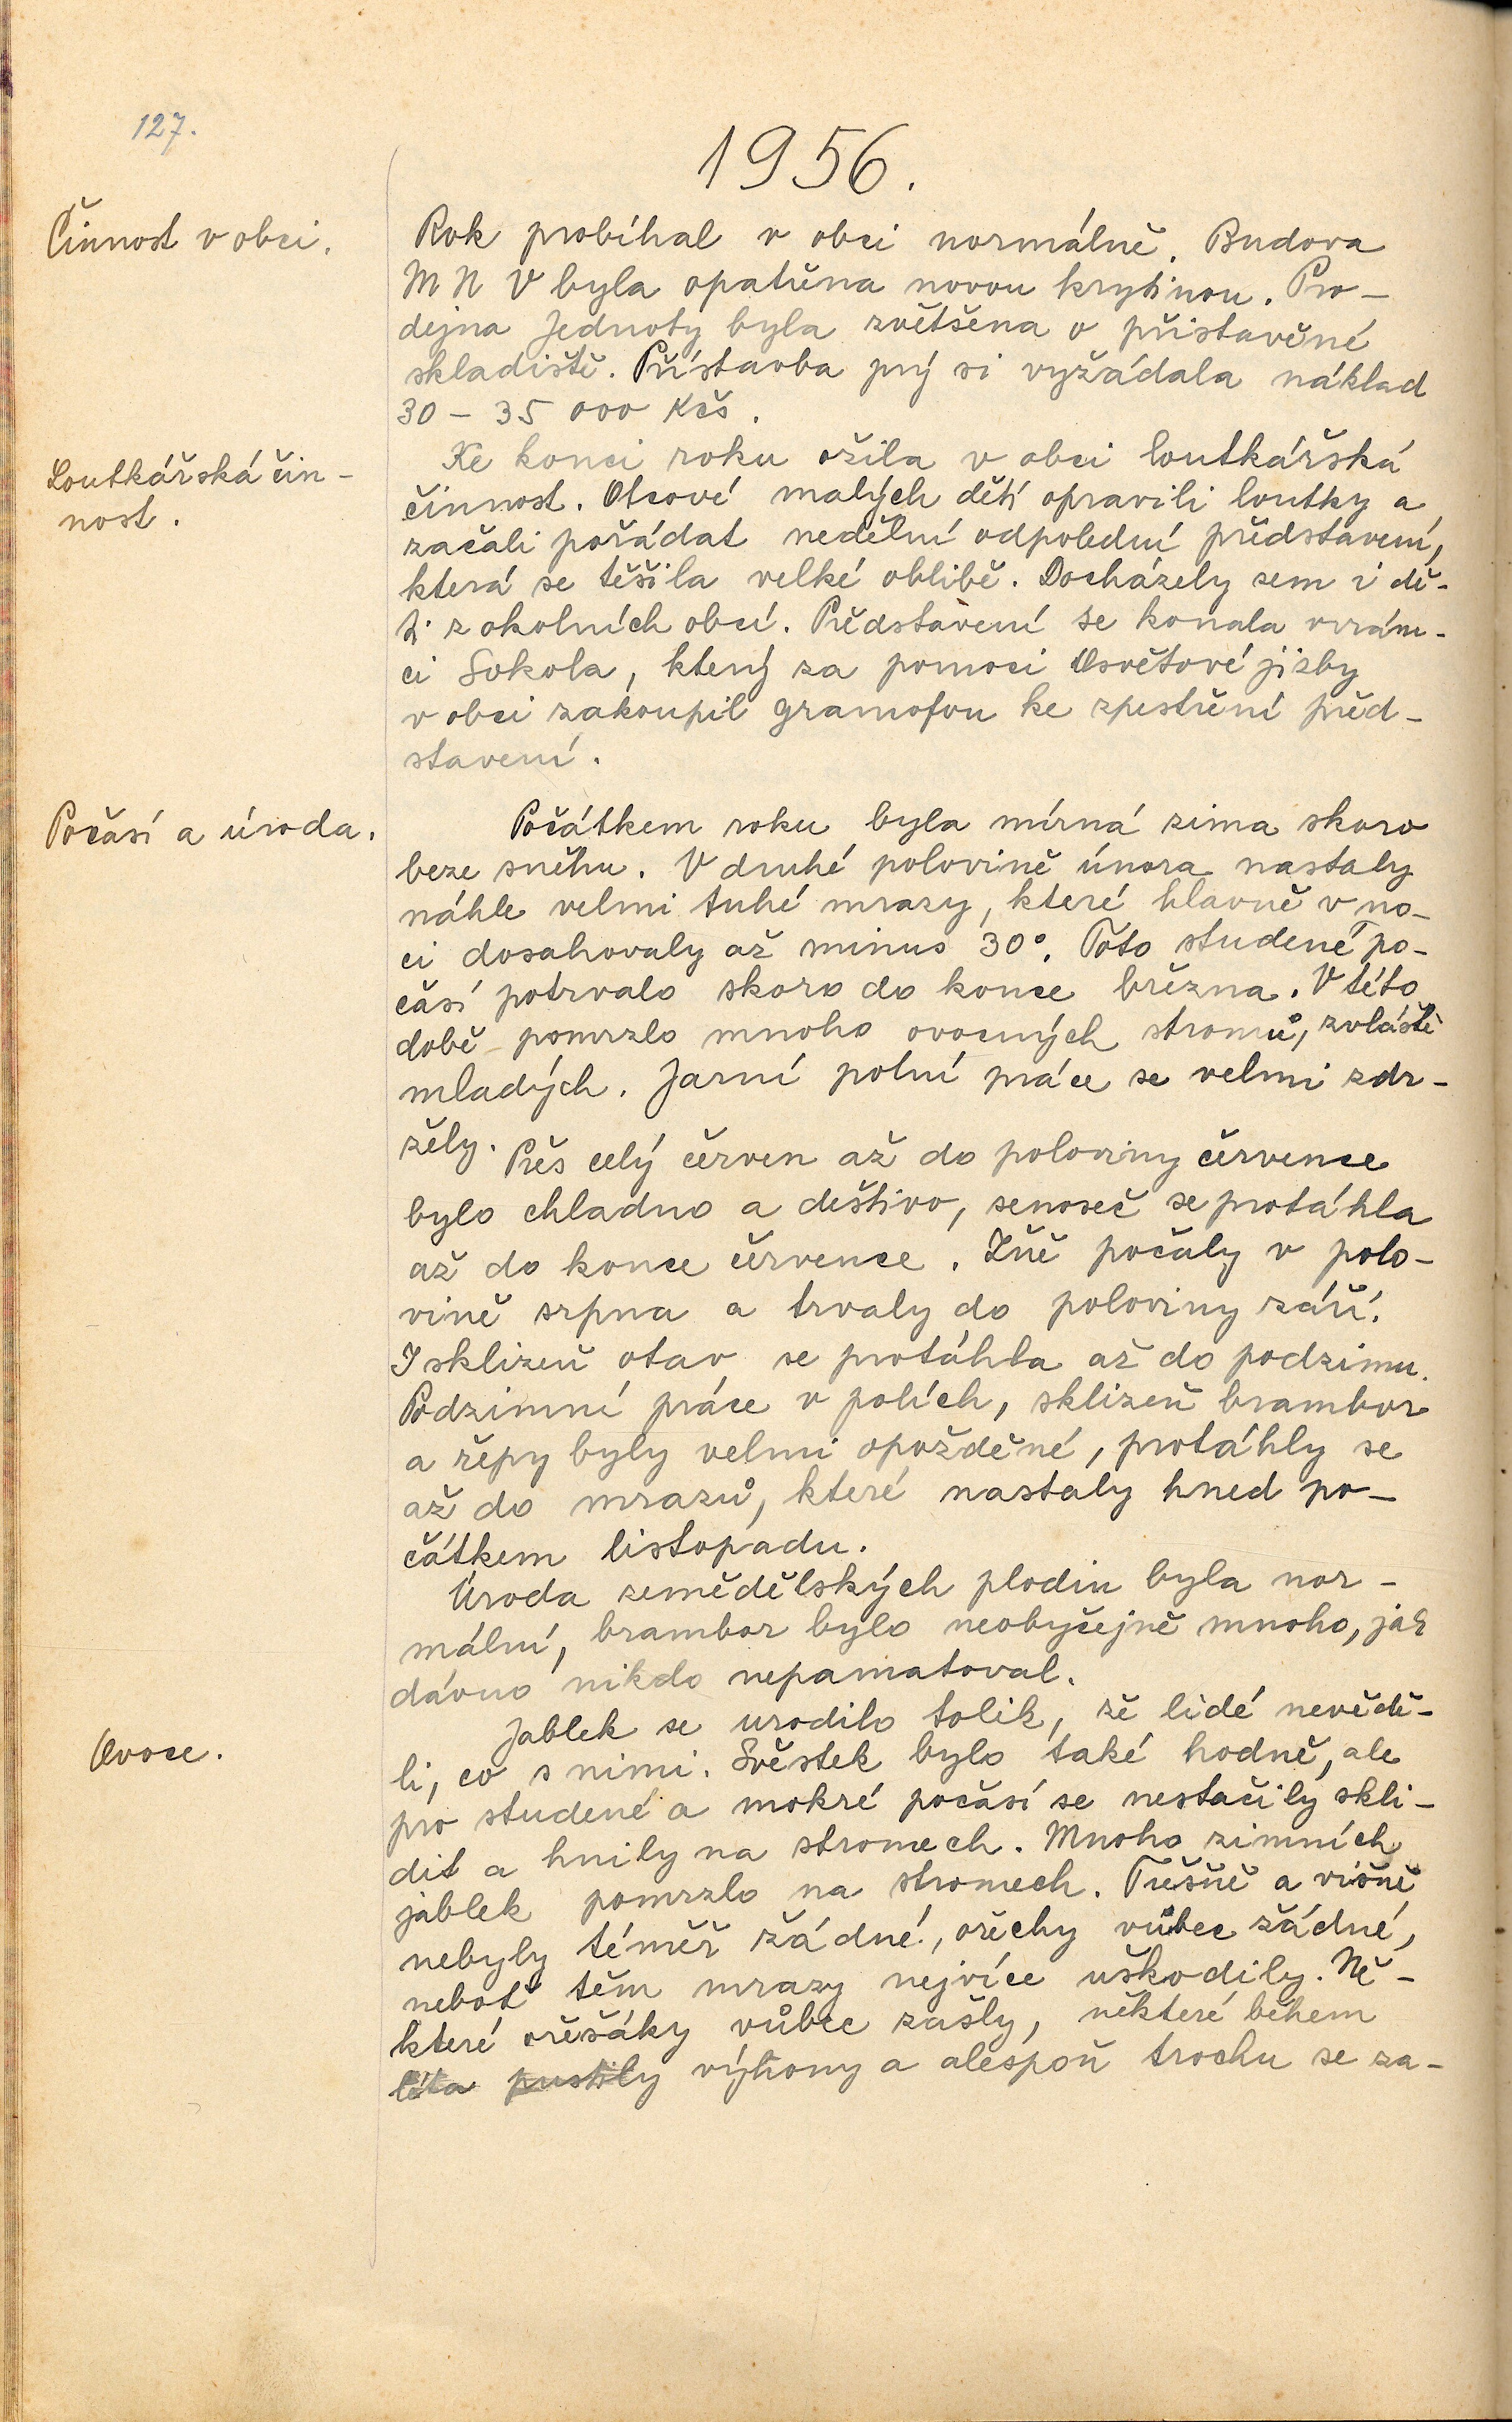 127.
1956.
Činnost v obci.
Rok probíhal v obci normálně. Budova
M N V byla opatřena novou krytinou. Pro-
dejna Jednoty byla zvětšena o přistavěné
skladiště. Přístavba prý si vyžádala náklad
30 - 35 000 Kčs.
Loutkářská čin-
nost.
Ke konci roku ožila v obci loutkářská
činnost. Otcové malých dětí opravili loutky a
začali pořádat nedělní odpolední představení,
která se těšila velké oblibě. Docházely sem i dě-
ti z okolních obcí. Představení se konala v rám-
ci Sokola, který za pomoci Osvětové jizby
v obci zakoupil gramofon ke zpestření před-
stavení.
Počasí a úroda.
Počátkem roku byla mírná zima skoro
beze sněhu. V druhé polovině února nastaly
náhle velmi tuhé mrazy, které hlavně v no-
ci dosahovaly až minus 30°. Toto studené po-
časí potrvalo skoro do konce března. V této
době pomrzlo mnoho ovocných stromů, zvláště
mladých. Jarní polní práce se velmi zdr-
žely. Přes celý červen až do poloviny července
bylo chladno a deštivo, senoseč se protáhla
až do konce července. Žně počaly v polo-
vině srpna a trvaly do poloviny září.
I sklizeň otav se protáhla až do podzimu.
Podzimní práce v polích, sklizeň brambor
a řepy byly velmi opožděné, protáhly se
až do mrazů, které nastaly hned po-
čátkem listopadu.
Úroda zemědělských plodin byla nor-
mální, brambor bylo neobyčejně mnoho, jak
dávno nikdo nepamatoval.
Ovoce.
Jablek se urodilo tolik, že lidé nevědě-
li, co s nimi. Švestek bylo také hodně, ale
pro studené a mokré počasí se nestačily skli-
dit a hnily na stromech. Mnoho zimních
jablek pomrzlo na stromech. Třešně a višně
nebyly téměř žádné, ořechy vůbec žádné,
neboť těm mrazy nejvíce uškodily. Ně-
které ořešáky vůbec zašly, některé během
léta pustily výhony a alespoň trochu se za-